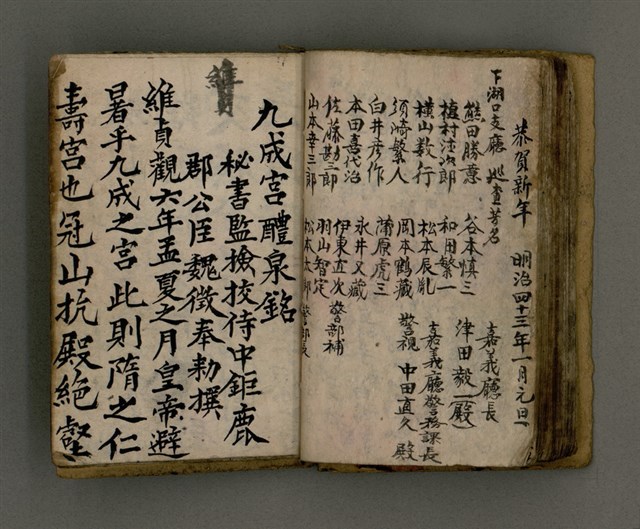 恭賀新年 明治四十三年一月元旦
下湖口支廳 巡查芳名
嘉義廳長
津田毅一殿
嘉義廳警務課長
警視 中田直久殿
熊田勝意 谷本慎三
植村 次郎 和田繁一
橫山数行 松本辰亂
須崎繁人 岡本鶴藏
白井彦作 蒲原虎三
本田喜代治 永井又識
佐藤 三郎 伊東直次 警部補
山本幸三郎 羽山智定
松本太郎 警部長
九成宮醴泉銘
秘書監撿挍侍中鉅鹿
郡公臣魏徴奉勅撰
維
維貞觀六年孟夏之月皇帝避
暑乎九成之宮此則隋之仁
壽宮也冠山抗殿絶壑